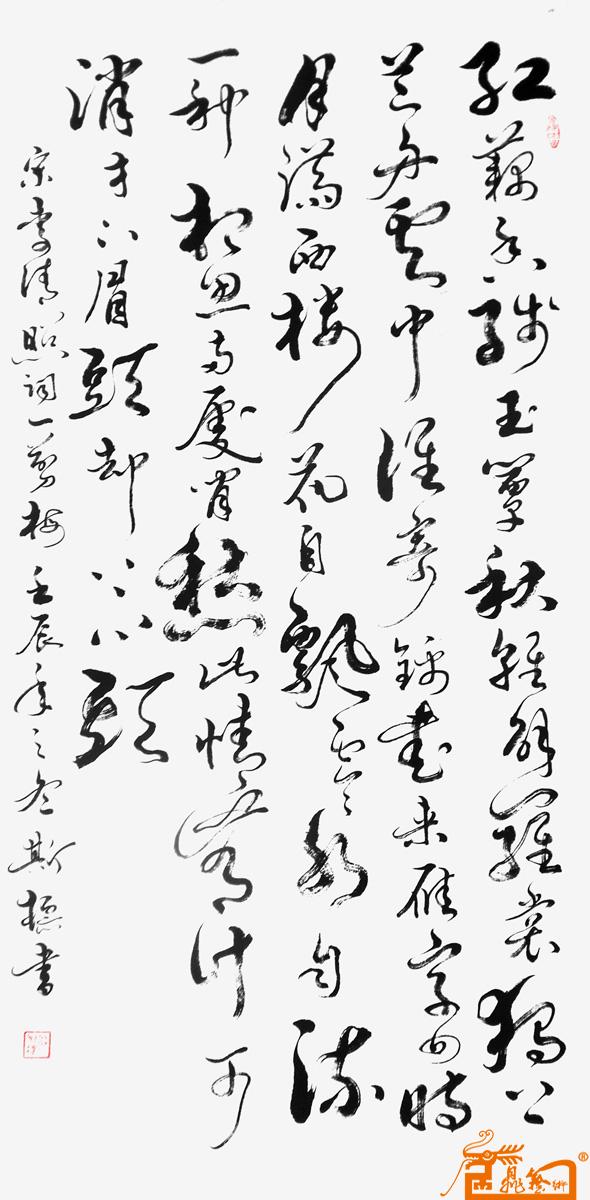 红藕香残玉簟秋轻解羅裳独上
兰舟云中谁寄锦书来雁字回时
月满西楼花自飄零水自流
一种相思两處闲愁此情无计可
消才下眉頭却上心頭
宋李清照词一剪梅壬辰年之冬斯书